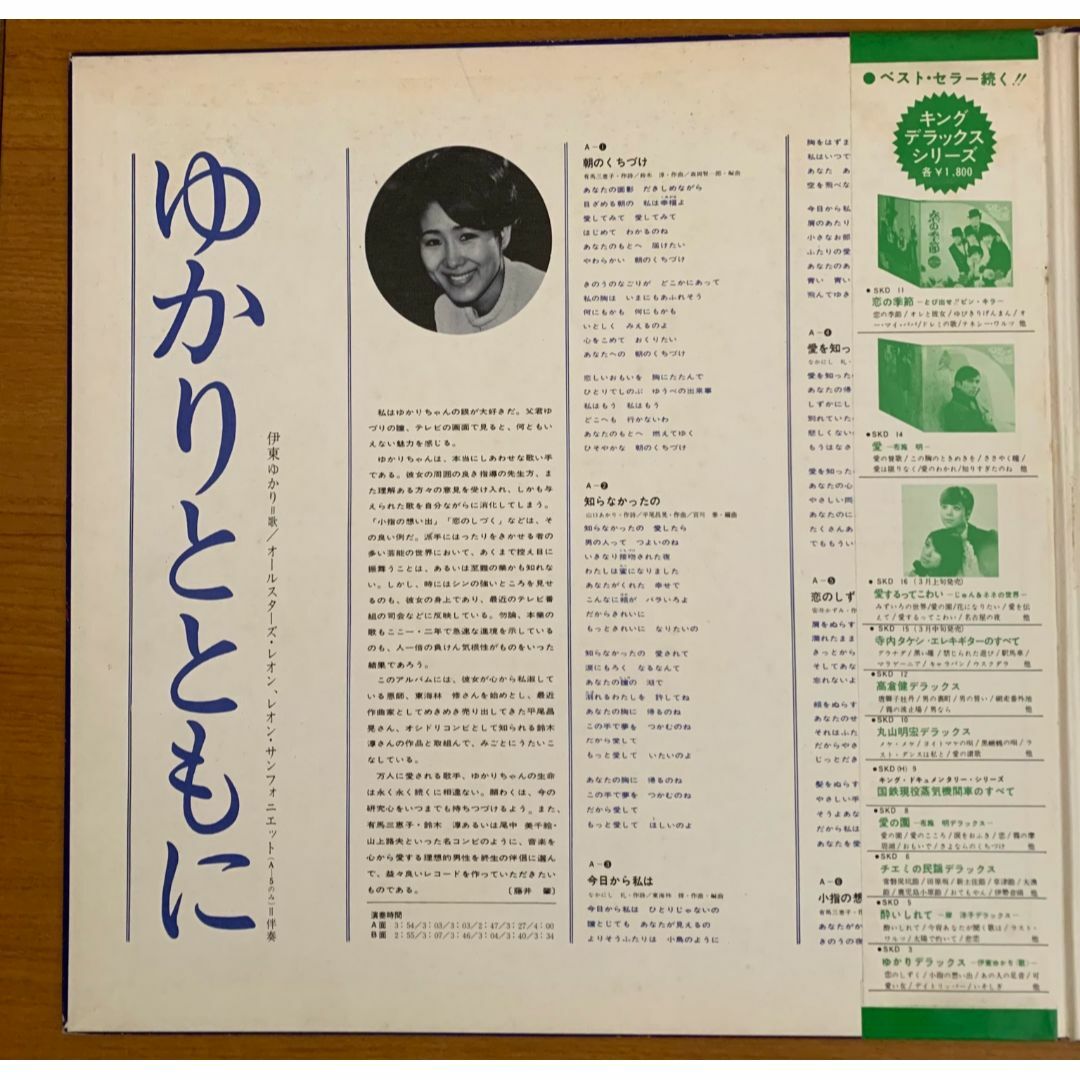 ゆかりとともに
伊東ゆかり＝歌／オールスターズ・レオン、レオン・サンフォニエット(A—5のみ)＝伴奏
私はゆかりちゃんの眼が大好きだ。父君ゆ
づりの瞳、テレビの画面で見ると、何ともい
えない魅力を感じる。
ゆかりちゃんは、本当にしあわせな歌い手
である。彼女の周囲の良き指導の先生方、ま
た理解ある方々の意見を受け入れ、しかも与
えられた歌を自分ながらに消化してしまう。
「小指の想い出」「恋のしづく」などは、そ
の良い例だ。派手にはったりをきかせる者の
多い芸能の世界において、あくまで控え目に
振舞うことは、あるいは至難の業かも知れな
い。しかし、時にはシンの強いところを見せ
るのも、彼女の身上であり、最近のテレビ番
組の司会などに反映している。勿論、本業の
歌もここ一・二年で急速な進境を示している
のも、人一倍の負けん気根性がものをいった
結果であろう。
このアルバムには、彼女が心から私淑して
いる恩師、東海林 修さんを始めとし、最近
作曲家としてめきめき売り出してきた平尾昌
晃さん、オシドリコンビとして知られる鈴木
淳さんの作品と取組んで、みごとにうたいこ
なしている。
万人に愛される歌手、ゆかりちゃんの生命
は永く永く続くに相違ない。願わくは、今の
研究心をいつまでも持ちつづけるよう。また、
有馬三恵子・鈴木 淳あるいは尾中 美千絵・
山上路夫といった名コンビのように、音楽を
心から愛する理想的男性を終生の伴侶に選ん
で、益々良いレコードを作っていただきたい
ものである。 〔藤井 肇〕
演奏時間
A面 3：54/3：03/3：03/2：47/3：27/4：00
B面 2：55/3：07/3：46/3：04/3：40/3：34
A－❶
朝のくちづけ
有馬三恵子・作詩／鈴木 淳・作曲／森岡賢一郎・編曲
あなたの面影 だきしめながら
目ざめる朝の 私は幸福よ
愛してみて 愛してみて
はじめて わかるのね
あなたのもとへ 届けたい
やわらかい 朝のくちづけ
きのうのなごりが どこかにあって
私の胸は いまにもあふれそう
何にもかも 何にもかも
いとしく みえるのよ
心をこめて おくりたい
あなたへの 朝のくちづけ
悲しいおもいを 胸にたたんで
ひとりでしのぶ ゆうべの出来事
私はもう 私はもう
どこへも 行かないわ
あなたのもとへ 燃えてゆく
ひそやかな 朝のくちづけ
A－❷
知らなかったの
山口あかり・作詩／平尾昌晃・作曲／百川 奏・編曲
知らなかったの 愛したら
男の人って つよいのね
いきなり接吻された夜
わたしは蜜になりました
あなたがくれた 幸せで
こんなに頬が バラいろよ
だからきれいに
もっときれいに なりたいの
知らなかったの 愛されて
涙にもろく なるなんて
あなたの瞳の 湖で
溺れるわたしを 許してね
あなたの胸に 帰るのね
この手で夢を つかむのね
だから愛して
もっと愛して いたいのよ
あなたの胸に 帰るのね
この手で夢を つかむのね
だから愛して
もっと愛して ほしいのよ
A－❸
今日から私は
なかにし 礼・作詩／東海林 修・作曲・編曲
今日から私は ひとりじゃないの
瞳とじても あなたが見えるの
よりそうふたりは 小鳥のように
胸をはずま
私はいつで
あなた あ
空を飛べな
今日から私
肩のあたり
小さなお部
ふたりの愛
あなたのあ
青い 青い
飛んでゆき
A－❹
愛を知っ
なかにし 礼・
愛を知った
あなたの帰
しずかにし
別れていた
悲しくない
もうはなさ
愛を知った
あなたの心
やさしい問
あなたのに
たくさんあ
でももうい
A－❺
恋のしず
安井かずみ・作
肩をぬらす
濡れたまま
きっとから
そしてあな
忘れないよ
頬をぬらす
あなたのせ
それはふた
だからやさ
じっとだき
髪をぬらす
やさしい手
そうよあな
だから私は
あなたを愛
A－❻
小指の想
有馬三恵子・作
あなたが
きのうの夜
●ベスト・セラー続く!!
キング
デラックス
シリーズ
各￥1,800
恋の季節
●SKD 11
恋の季節 ―とび出せ!!ピン・キラ―
恋の季節／オレと彼女／ゆびきりげんまん／オ
ー・マイ・パパ／ドレミの歌／テネシー・ワルツ 他
●SKD 14
愛 ―布施 明―
愛の讃歌／この胸のときめきを／ささやく瞳／
愛は限りなく／愛のわかれ／知りすぎたのね 他
●SKD 16 (3月上旬発売)
愛するってこわい ―じゅん&ネネの世界―
みずいろの世界／愛の園／花になりたい／愛を伝
えて／愛するってこわい／名古屋の夜 他
●SKD 15 (3月中旬発売)
寺内タケシ・エレキギターのすべて
グラナダ／黒い瞳／禁じられた遊び／駅馬車／
マラゲーニア／キャラバン／ウスクダラ 他
●SKD 12
高倉健デラックス
唐獅子牡丹／男の裏町／男の誓い／網走番外地
／霧の波止場／男なら 他
●SKD 10
丸山明宏デラックス
メケ・メケ／ヨイトマケの唄／黒蜥蜴の唄／ラ
スト・ダンスは私と／愛の讃歌 他
●SKD(H) 9
キング・ドキュメンタリー・シリーズ
国鉄現役蒸気機関車のすべて
●SKD 8
愛の園 ―布施 明デラックス―
愛の園／愛のこころ／涙をおふき／恋／霧の摩
周湖／おもいで／さよならのくちづけ 他
●SKD 6
チエミの民謡デラックス
常磐炭坑節／田原坂／新土佐節／草津節／大漁
節／鹿児島小原節／おてもやん／伊勢音頭 他
●SKD 5
酔いしれて ―扉 洋子デラックス―
酔いしれて／今宵あなたが聞く歌は／ラスト・
ワルツ／太陽で灼いて／悲恋 他
●SKD 3
ゆかりデラックス ―伊東ゆかり(歌)―
恋のしずく／小指の想い出／あの人の足音／可
愛い女／デイトリッパー／いそしぎ 他